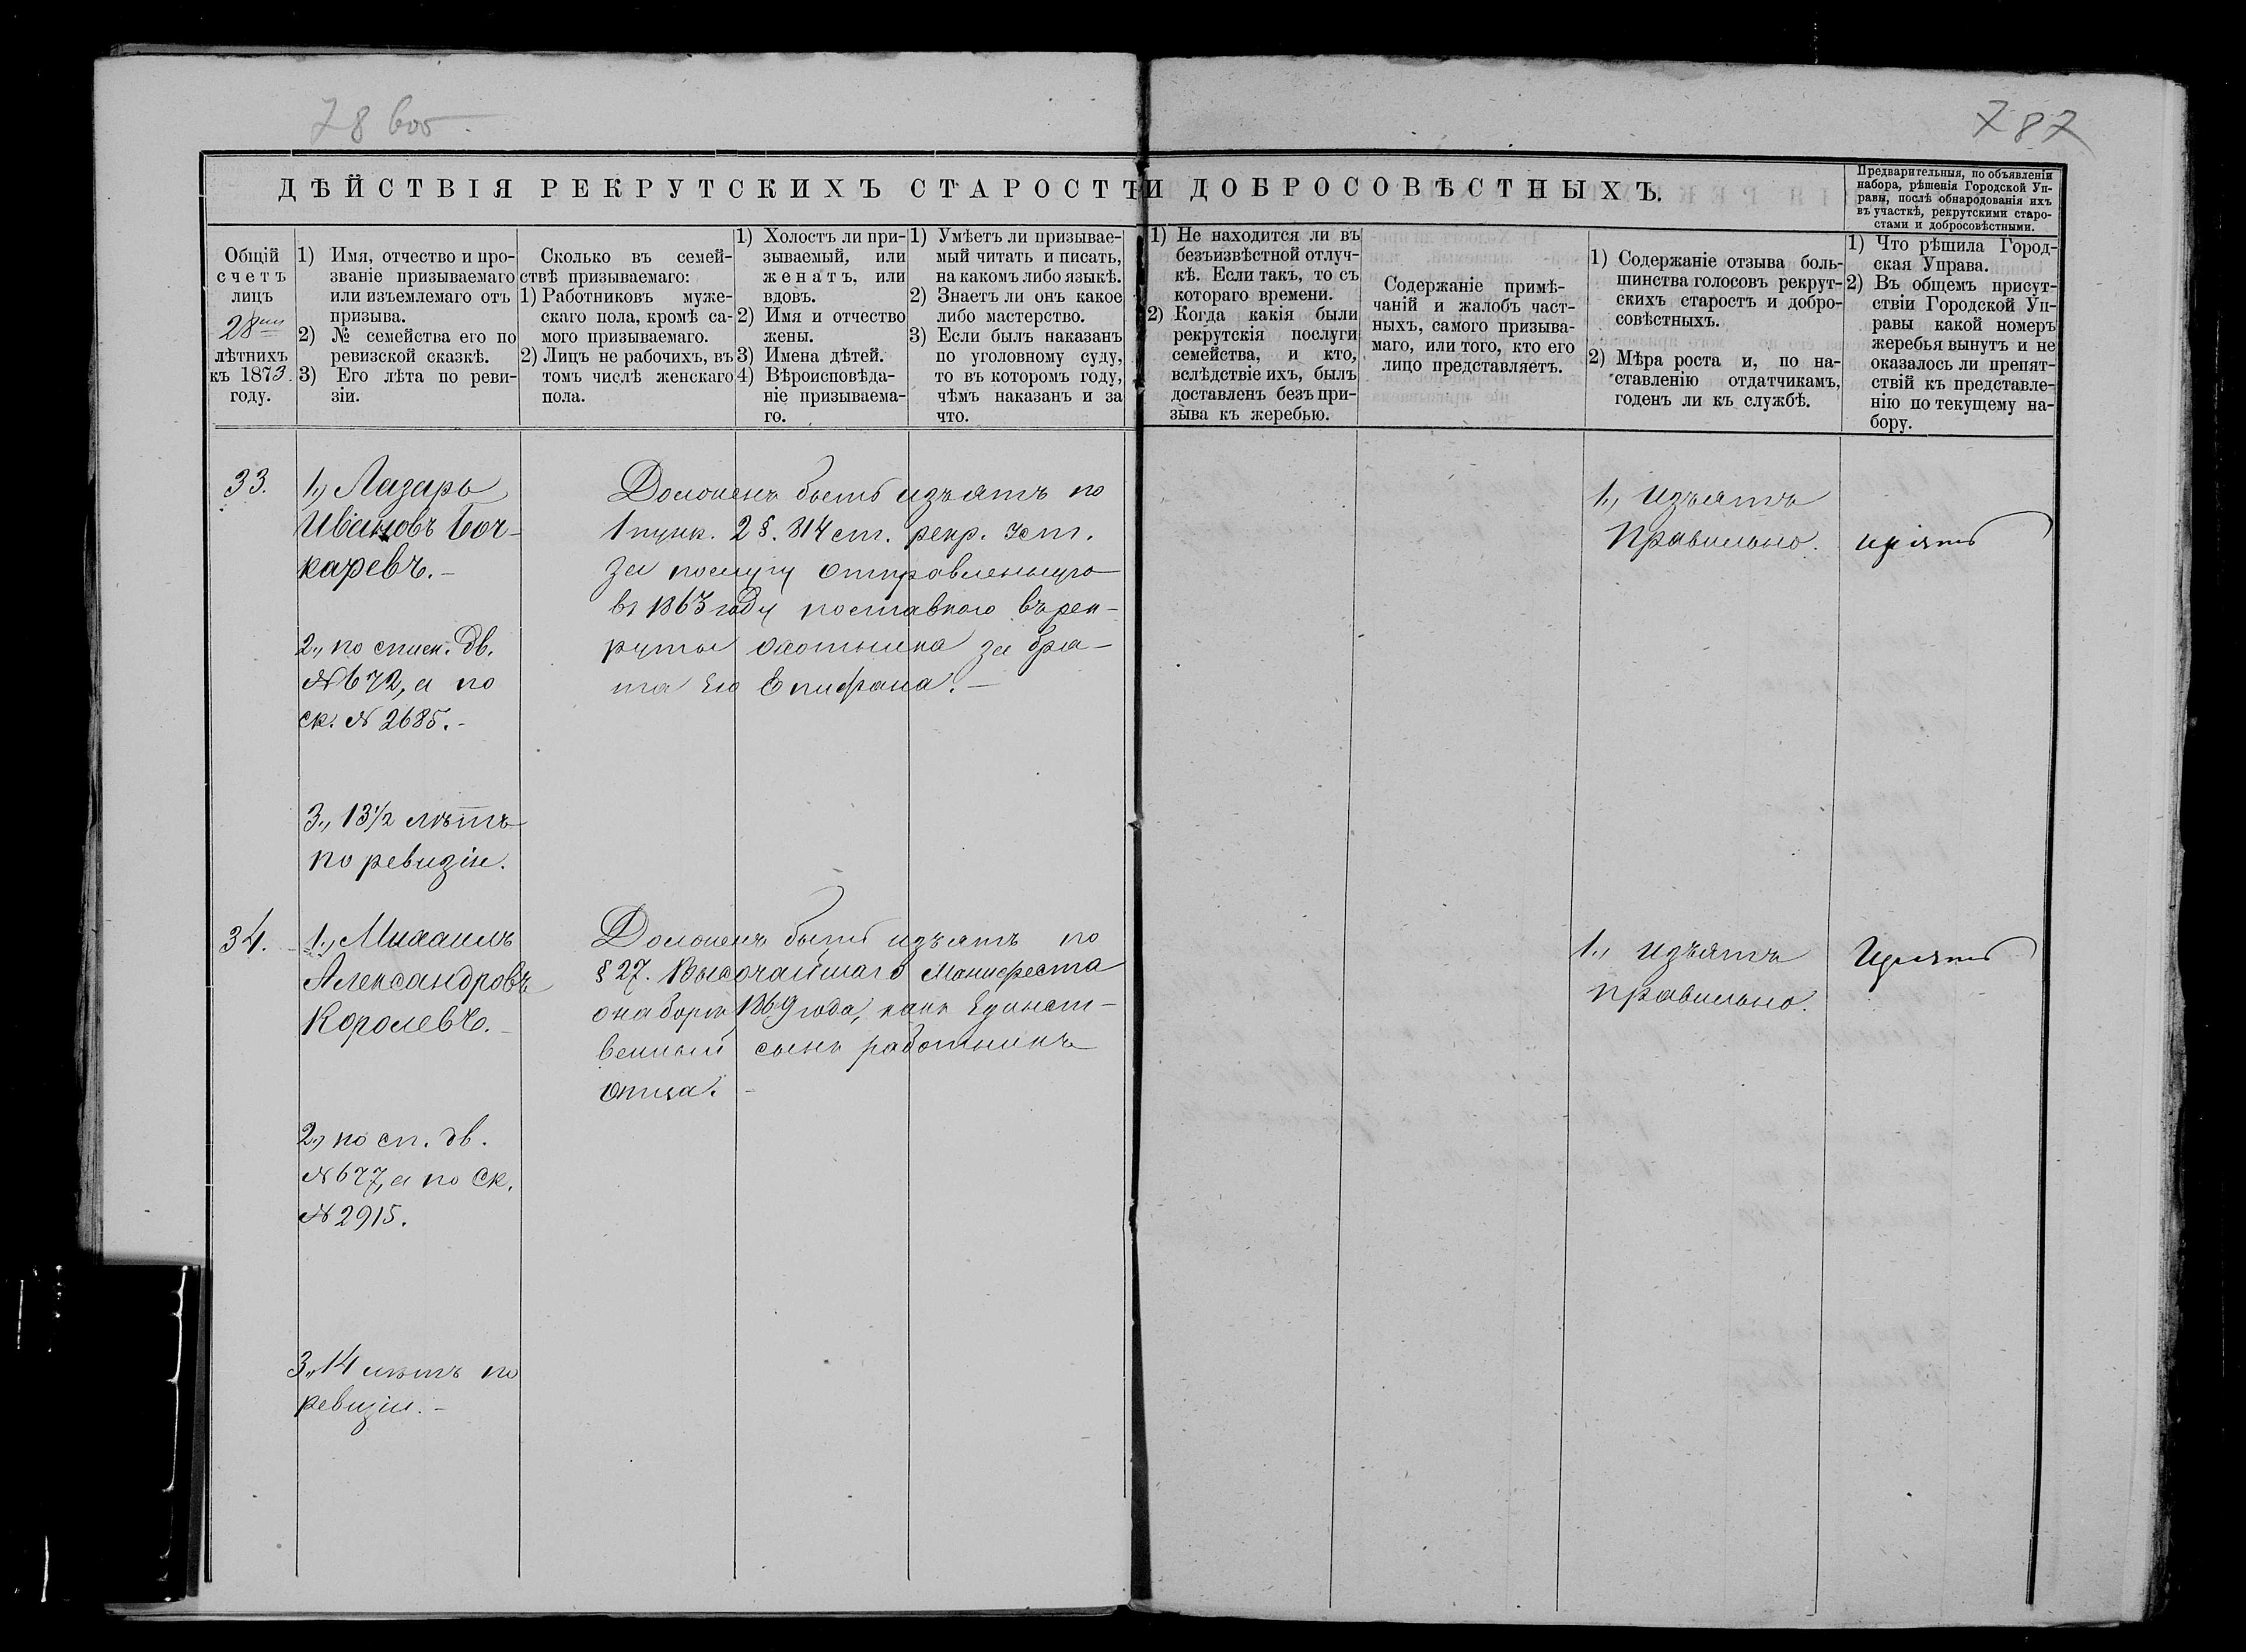 78 воо
787
ДѢЙСТВІЯ РЕКРУТСКИХЪ СТАРОСТЪ И ДОБРОСОВѢСТНЫХЪ.
Предварительныя, по объявленіи
набора, рѣшенія Городской Уп-
равы, послѣ обнародованія ихъ
въ участкѣ, рекрутскими старо-
стами и добросовѣстными.
Общій
счетъ
лицъ
28ми
лѣтнихъ
къ 1873.
году.
1) Имя, отчество и про-
званіе призываемаго
или изъемлемаго отъ
призыва.
2) № семейства его по
ревизской сказкѣ.
3) Его лѣта по реви-
зіи.
Сколько въ семей-
ствѣ призываемаго:
1) Работниковъ муже-
скаго пола, кромѣ са-
мого призываемаго.
2) Лицъ не рабочихъ, въ
томъ числѣ женскаго
пола.
1) Холостъ ли при-
зываемый, или
женатъ, или
вдовъ.
2) Имя и отчество
жены.
3) Имена дѣтей.
4) Вѣроисповѣда-
ніе призываема-
го.
1) Умѣетъ ли призывае-
мый читать и писать,
на какомъ либо языкѣ.
2) Знаетъ ли онъ какое
либо мастерство.
3) Если былъ наказанъ
по уголовному суду,
то въ которомъ году,
чѣмъ наказанъ и за
что.
1) Не находится ли въ
безъизвѣстной отлуч-
кѣ. Если такъ, то съ
котораго времени.
2) Когда какія были
рекрутскія послуги
семейства, и кто,
вслѣдствіе ихъ, былъ
доставленъ безъ при-
зыва къ жеребью.
Содержаніе примѣ-
чаній и жалобъ част-
ныхъ, самого призыва-
маго, или того, кто его
лицо представляетъ.
1) Содержаніе отзыва боль-
шинства голосовъ рекрут-
скихъ старостъ и добро-
совѣстныхъ.
2) Мѣра роста и, по на-
ставленію отдатчикамъ,
годенъ ли къ службѣ.
1) Что рѣшила Город-
ская Управа.
2) Въ общемъ присут-
ствіи Городской Уп-
равы какой номеръ
жеребья вынутъ и не
оказалось ли препят-
ствій къ представле-
нію по текущему на-
бору.
33.
1., Лазарь
Ивановъ Боч-
каревъ.-
2., по списк. дв.
№ 672, а по
ск. № 2685.-
3., 13 1/2 лѣтъ
по ревизіи.
Долженъ быть изъятъ по
1 пунк. 2 §. 814 ст. рекр. уст.
за послугу отправленную
въ 1863 году поставкою въ рек-
руты охотника за бра-
та его Епифана.-
1., Изъятъ
правильно.
изъять
34.
1., Михаилъ
Александровъ
Королевъ.-
2., по сп. дв.
№ 677, а по ск.
№ 2915.
3., 14 лѣтъ по
ревизіи.-
Долженъ быть изъятъ по
§ 27. Высочайшаго Манифеста
о наборѣ 1869 года, какъ единст-
венный сынъ работникъ
отца.-
1., Изъятъ
правильно.
Изъять